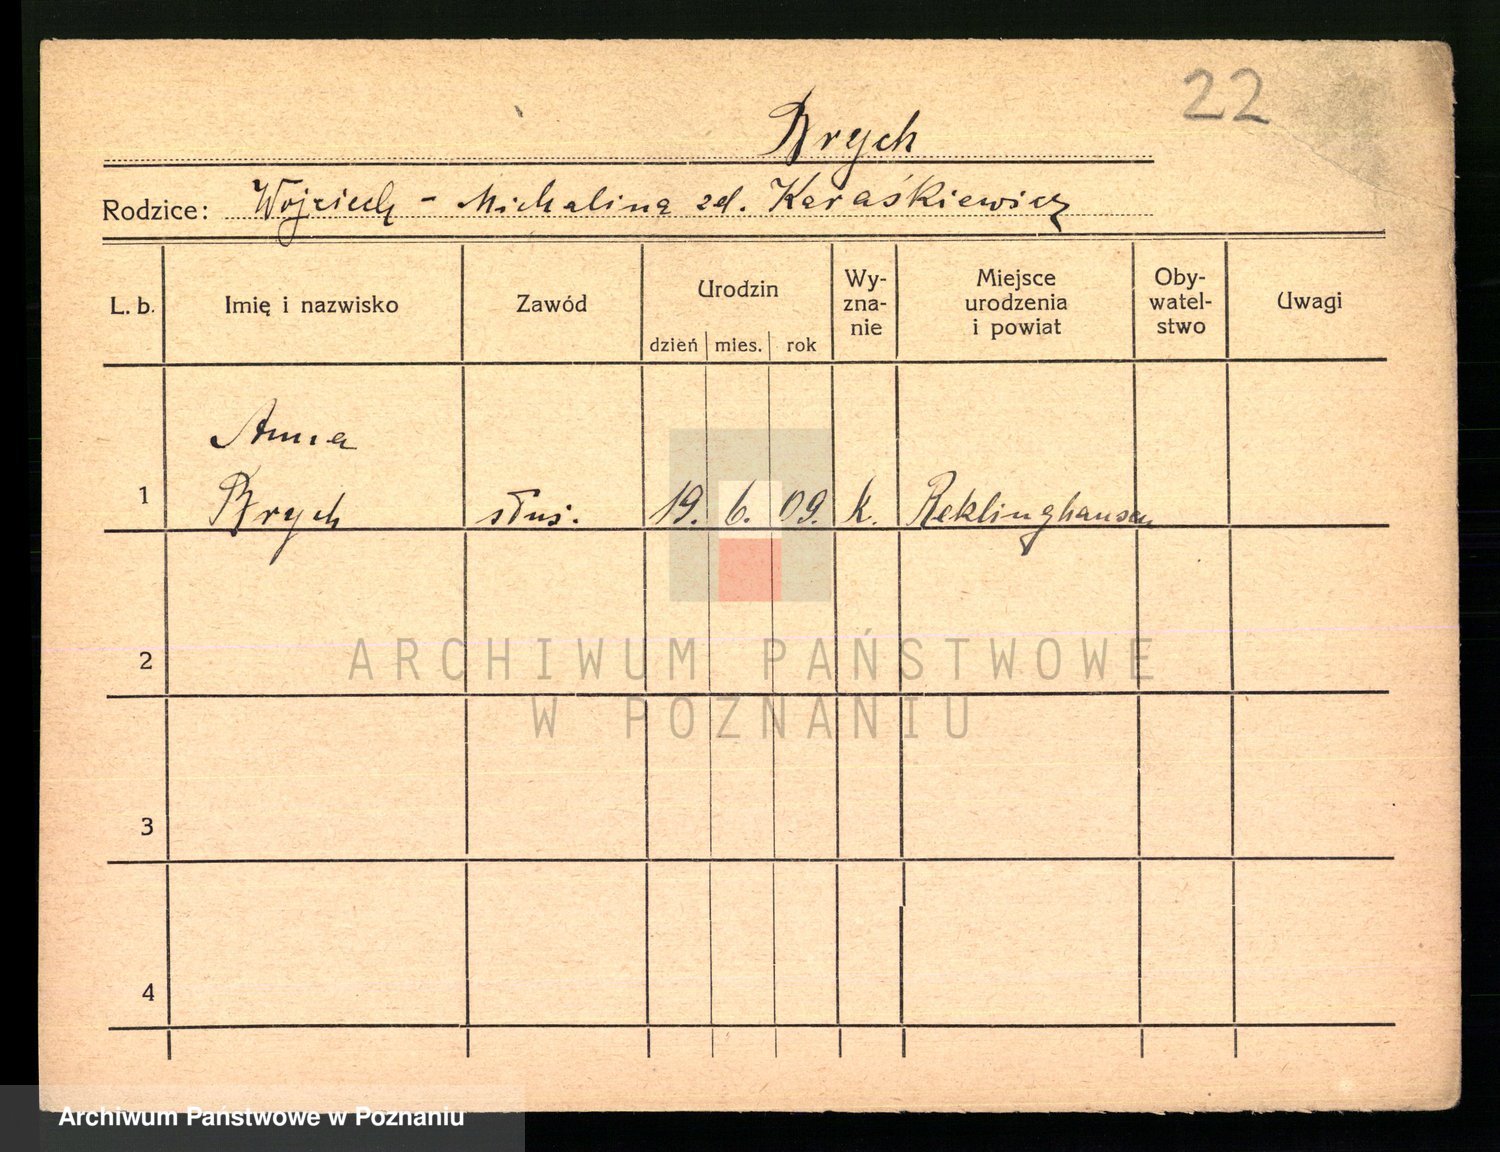 22
Brych
Rodzice: Wojciech - Michalina zd. Karaśkiewicz
L. b. Imię i nazwisko Zawód Urodzin Wy-zna-nie Miejsce urodzenia i powiat Oby-watel-stwo Uwagi
dzień mies. rok
Anna
1 Brych służ. 19. 6. 09. k. Reklinghausen
2
ARCHIWUM PAŃSTWOWE
W POZNANIU
3
4
Archiwum Państwowe w Poznaniu